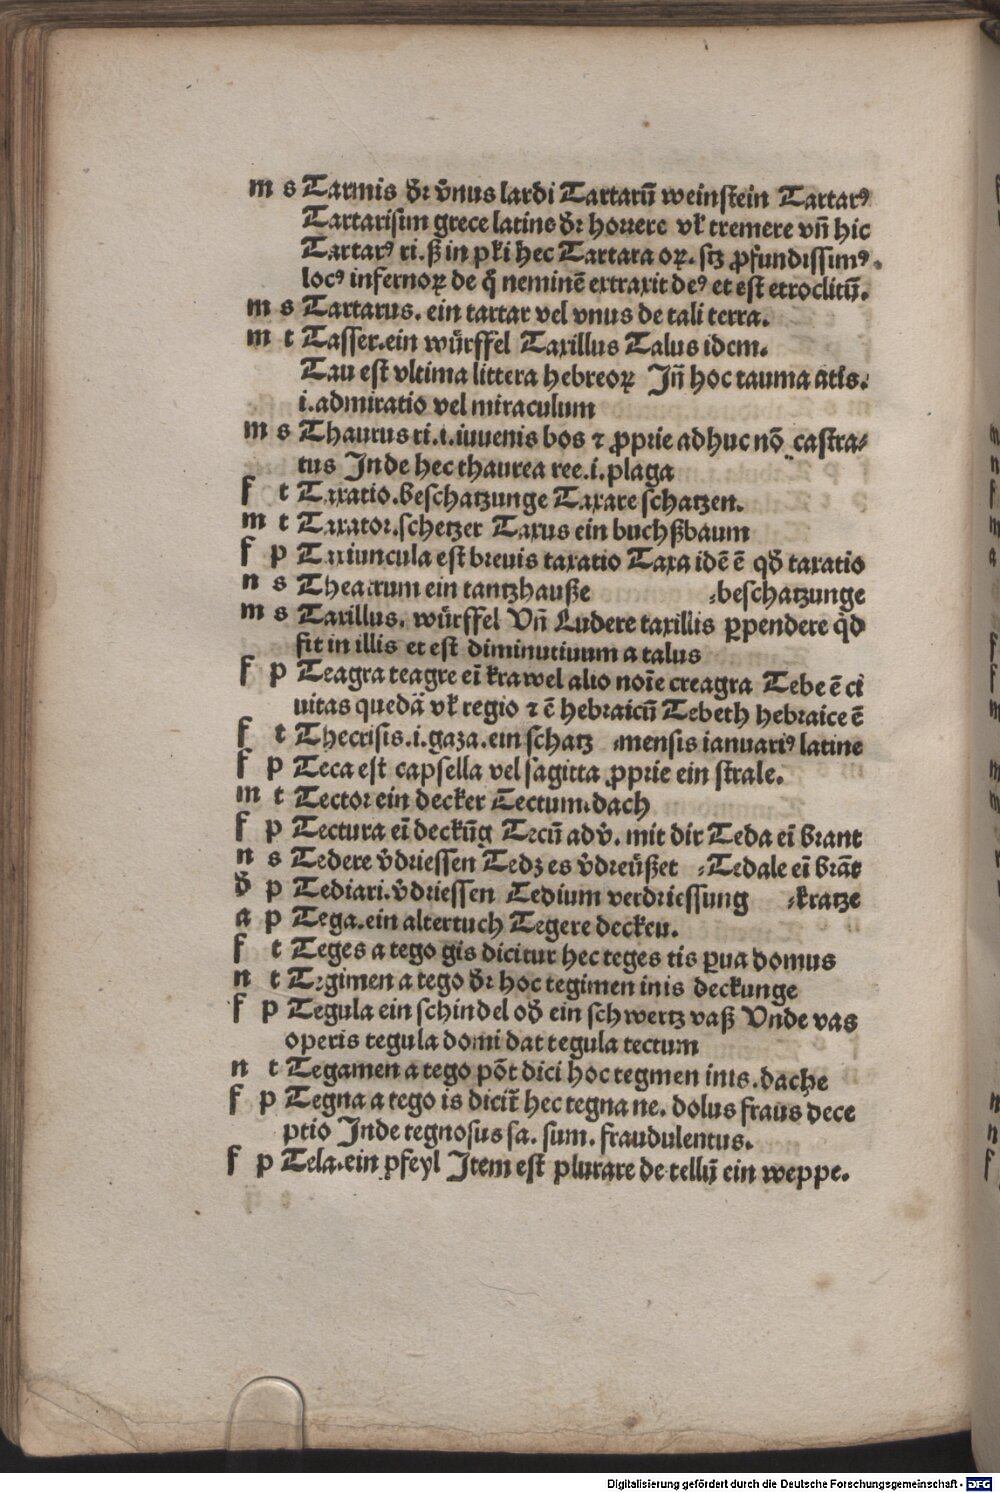 m s Tarmis dr̄ v̄nus lardi Tartarū weinstein Tartarꝰ
Tartarisim grece latine dr̄ horrere vl̄ tremere vn̄ hic
Tartarꝰ ri. ß in pl̄i hec Tartara oꝝ. scꝫ ꝓfundissimꝰ
locꝰ infernoꝝ de q̄ neminē extraxit deꝰ et est etroclitū.
m s Tartarus. ein tartar vel vnus de tali terra.
m t Tasser. ein wu̇rffel Taxillus Talus idem.
Tau est vltima littera hebreoꝝ Jn̄ hoc tauma atis.
i. admiratio vel miraculum
m s Thaurus ri. i. iuuenis bos ⁊ ꝓprie adhuc nō castra⸗
tus Jnde hec thaurea ree. i. plaga
f t Taxatio. beschatzunge Taxare schatzen.
m t Taxator. schetzer Taxus ein buchßbaum
f p Taxiuncula est breuis taxatio Taxa idē ē qđ taxatio
n s Theatrum ein tantzhauße ⸗beschatzunge
m s Taxillus. wu̇rffel Vn̄ Ludere taxillis ꝑpendere qͥd
fit in illis et est diminutiuum a talus
f p Teagra teagre eī krawel alio noīe creagra Tebe ē ci
uitas quedā vl̄ regio ⁊ ē hebraicū Tebeth hebraice ē
f t Thecrisis. i. gaza. ein schatz ⸗mensis ianuariꝰ latine
f p Teca est capsella vel sagitta ꝓprie ein strale.
m t Tector ein decker Tectum. dach
f p Tectura eī deckūg Tecū adv̄. mit dir Teda eī brant
n s Tedere v̄driessen Tedꝫ es v̄dreu̇ßet ⸗Tedale eī brāt
đ p Tediari. v̄driessen Tedium verdriessung ⸗kratze
a p Tega. ein altertuch Tegere decken.
f t Teges a tego gis dicitur hec teges tis ꝑua domus
n t Tegimen a tego dr̄ hoc tegimen inis deckunge
f p Tegula ein schindel ođ ein schwertz vaß Vnde vas
operis tegula domi dat tegula tectum
n t Tegamen a tego pōt dici hoc tegmen inis. dache
f p Tegna a tego is dicit̄ hec tegna ne. dolus fraus dece
ptio Jnde tegnosus sa. sum. fraudulentus.
f p Tela. ein pfeyl Jtem est plurare de tellū ein weppe.
Digitalisierung gefördert durch die Deutsche Forschungsgemeinschaft - DFG